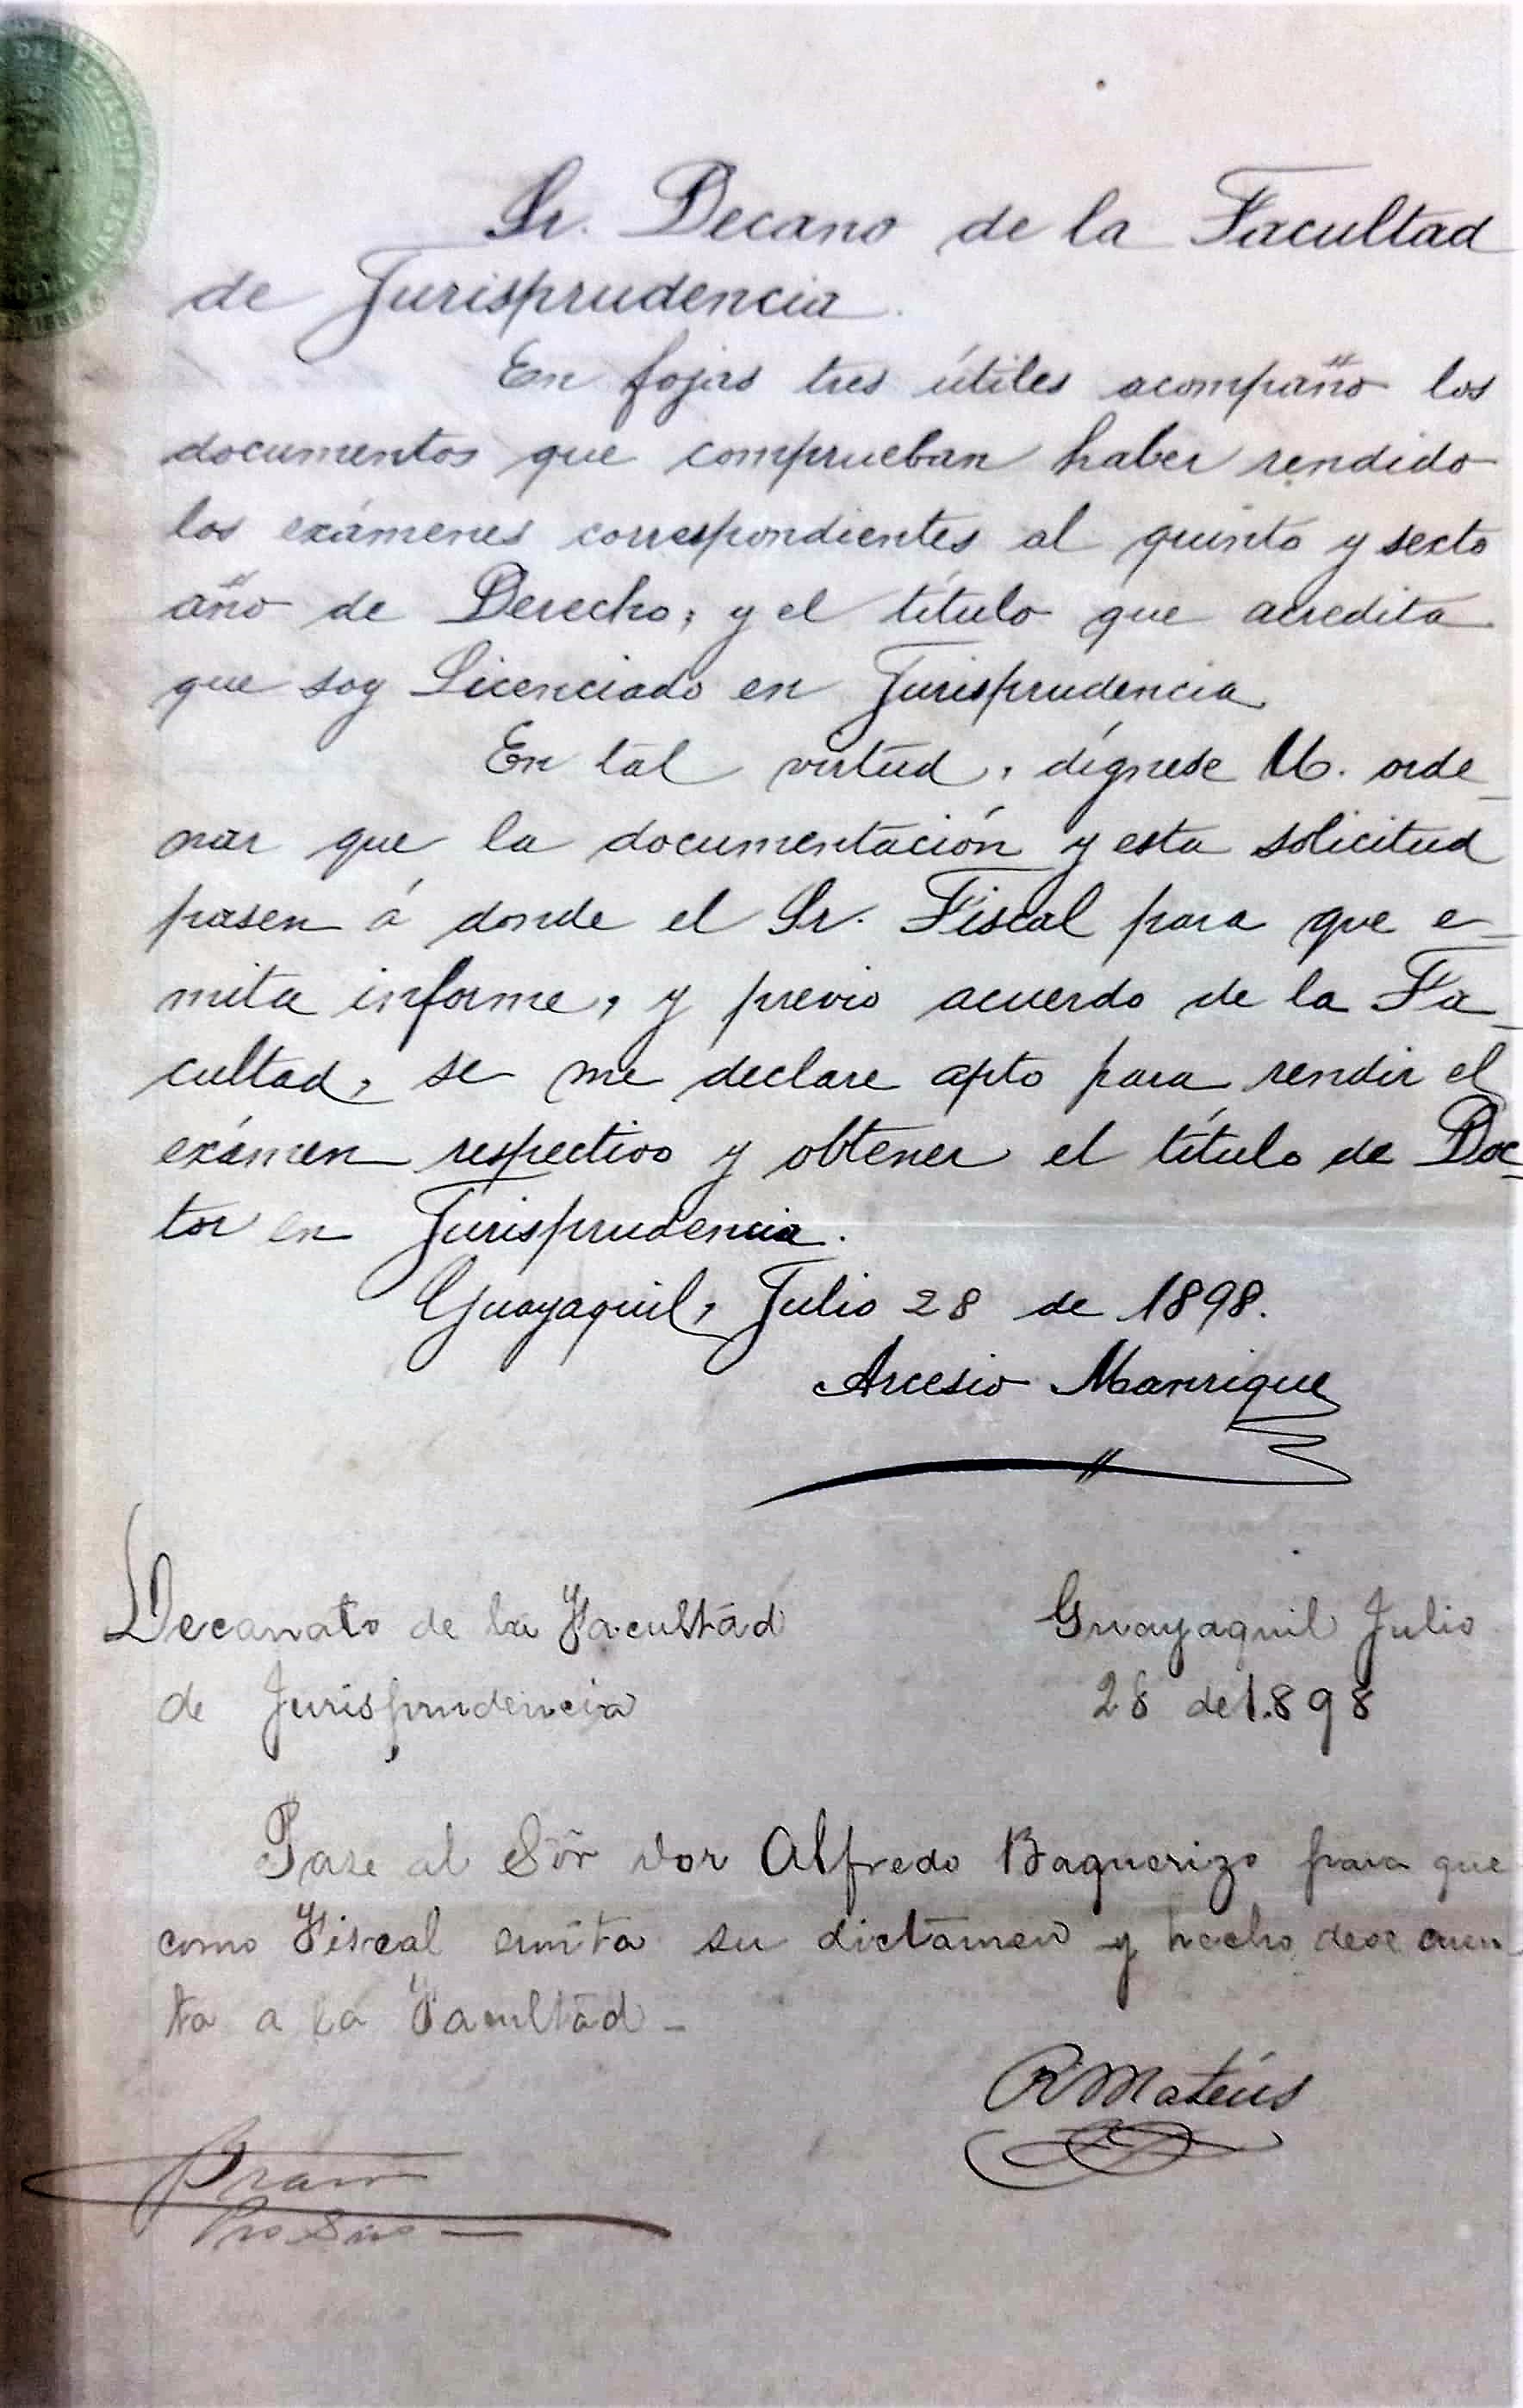 DEL ECUADOR
Sr. Decano de la Facultad
de Jurisprudencia.
En fojas tres útiles acompaño los
documentos que comprueban haber rendido
los exámenes correspondientes al quinto y secto
año de Derecho; y el título que acredita
que soy Licenciado en Jurisprudencia
En tal virtud, dígnese U. orde_
nar que la documentación y esta solicitud
pasen á donde el Sr. Fiscal para que e_
mita informe, y previo acuerdo de la Fa_
cultad, se me declare apto para rendir el
exámen respectivo y obtener el título de Doc_
tor en Jurisprudencia.
Guayaquil, Julio 28 de 1898.
Arcesio Manrique
Decanato de la Facultad
de Jurisprudencia
Guayaquil Julio
28 de 1.898
Pase al Sõr Dor Alfredo Baquerizo para que
como Fiscal emita su dictamen y hecho dese cuen_
ta a la Facultad _
R Mateús